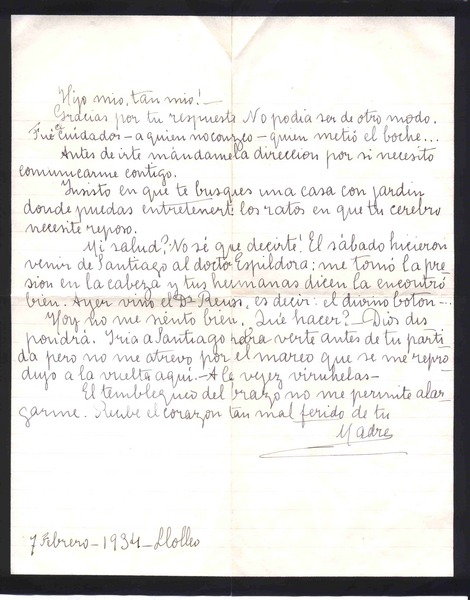 Hijo mio, tan mio! —
Gracias por tu respuesta No podia ser de otro modo.
Fué Cuidados – a quien no conozco – quien metió el boche...
Antes de irte mándame la direccion por si necesito
comunicarme contigo.
Insisto en que te busques una casa con jardin
donde puedas entretenerte los ratos en que tu cerebro
necesite reposo.
Mi salud? No sé que decirte! El sábado hicieron
venir de Santiago al doctor Espildora; me tomó la pre
sion en la cabeza y tus hermanas dicen la encontró
bien. Ayer vino el Dr es decir: el divino boton –.
Hoy no me siento bien. Qué hacer? – Dios dis
pondrá. Iria a Santiago para verte antes de tu parti
da pero no me atrevo por el mareo que se me repro
dujo a la vuelta aquí. – A la vejez viruhelas –
El tembleques del brazo no me permite alar
garme. Recibe el corazon tan mal ferido de tu
Madre
7 Febrero – 1934 – Llolleo